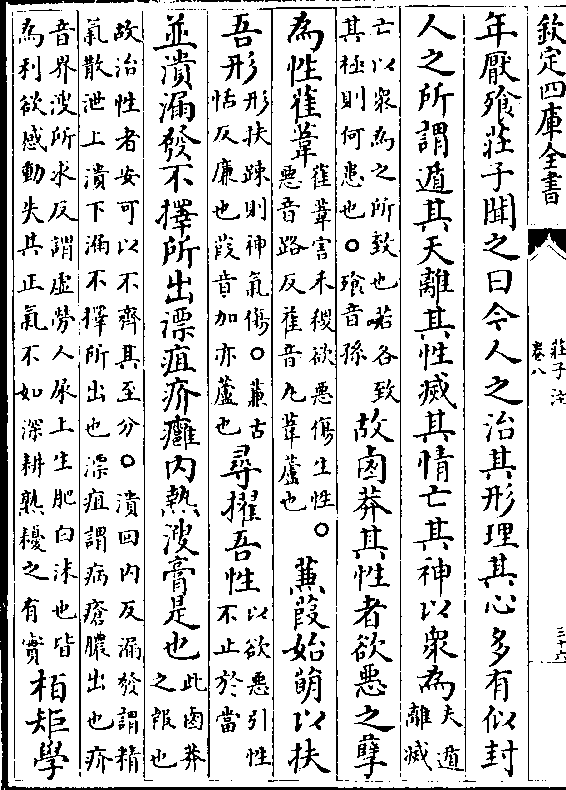 欽定四庫全書
莊子注
卷八
三十六
年厭飱莊子聞之曰今人之治其形理其心多有似封
人之所謂遁其天離其性滅其情亡其神以衆為夫遁離滅
亡以衆為之所致也若各致其極則何患也〇飱音孫故鹵莽其性者欲惡之孽
為性萑葦萑葦害禾稷欲惡傷生性〇惡音路反萑音丸葦蘆也蒹葭始萌以扶
吾形形扶踈則神氣傷〇蒹古恬反廉也葭音加亦蘆也尋擢吾性以欲惡引性不止於當
並潰漏發不擇所出漂疽疥癰内熱溲膏是也此鹵莽之報也
故治性者安可以不齊其至分〇潰回内反漏發謂精氣散泄上潰下漏不擇所出也漂疽謂病瘡膿出也疥
音界溲所求反謂虚勞人尿上生肥白沫也皆為利欲感動失其正氣不如深耕熟耰之有實栢矩學